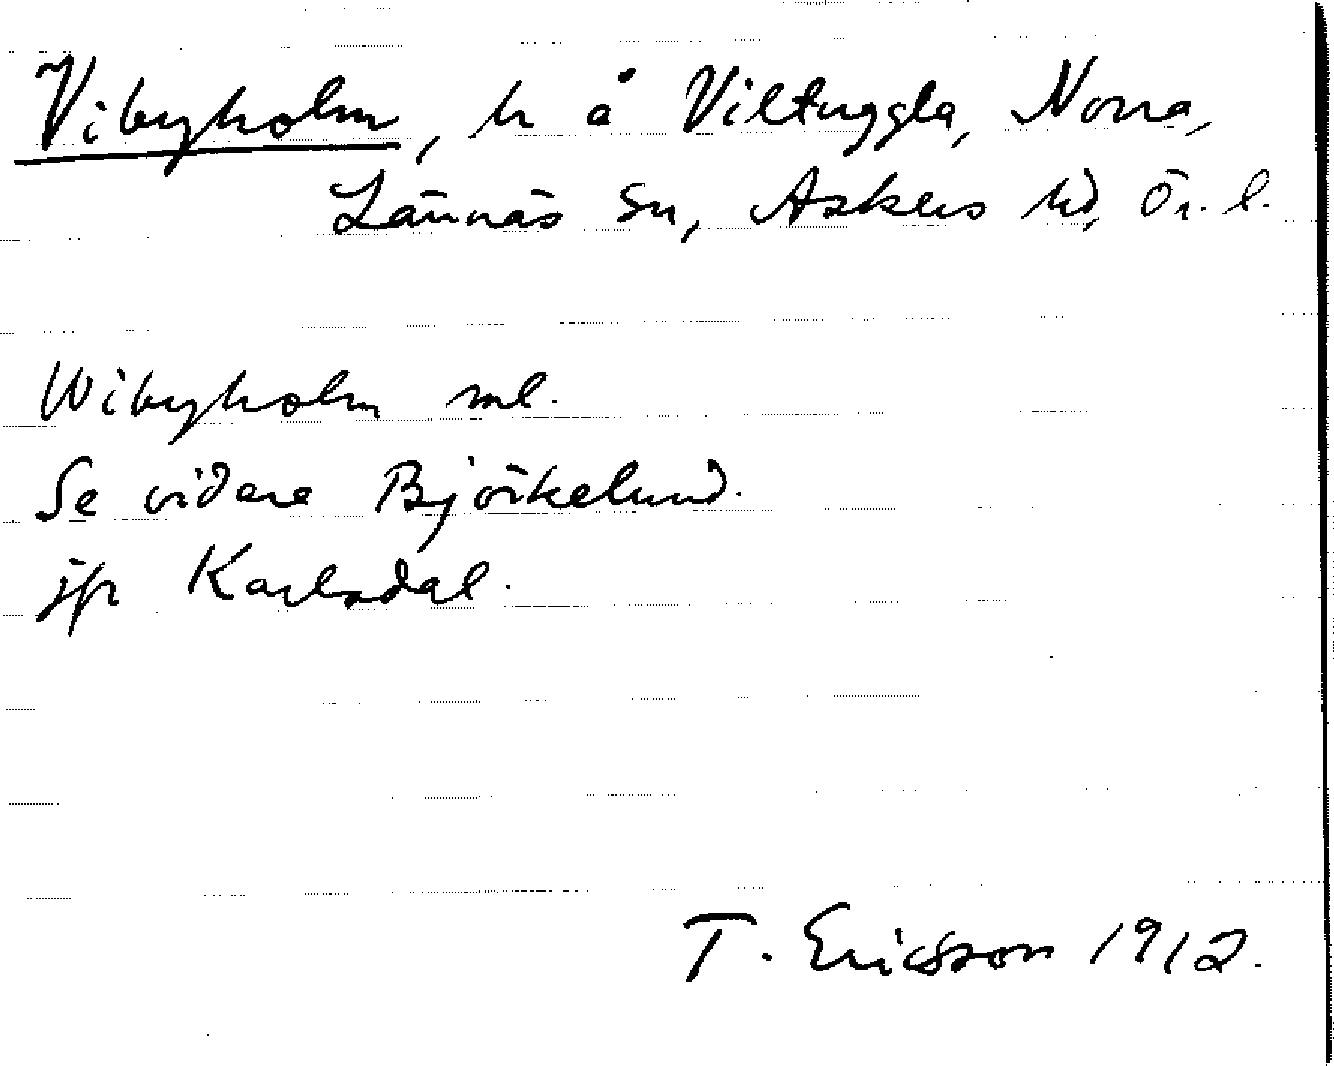 Vibyholm, h å Viltuggla, Norra,
Lännäs sn, Askers hd, Ör. l.
Wibyholm ml.
Se vidare Björkelund.
jfr Karlsdal.
T. Ericsson 1912.